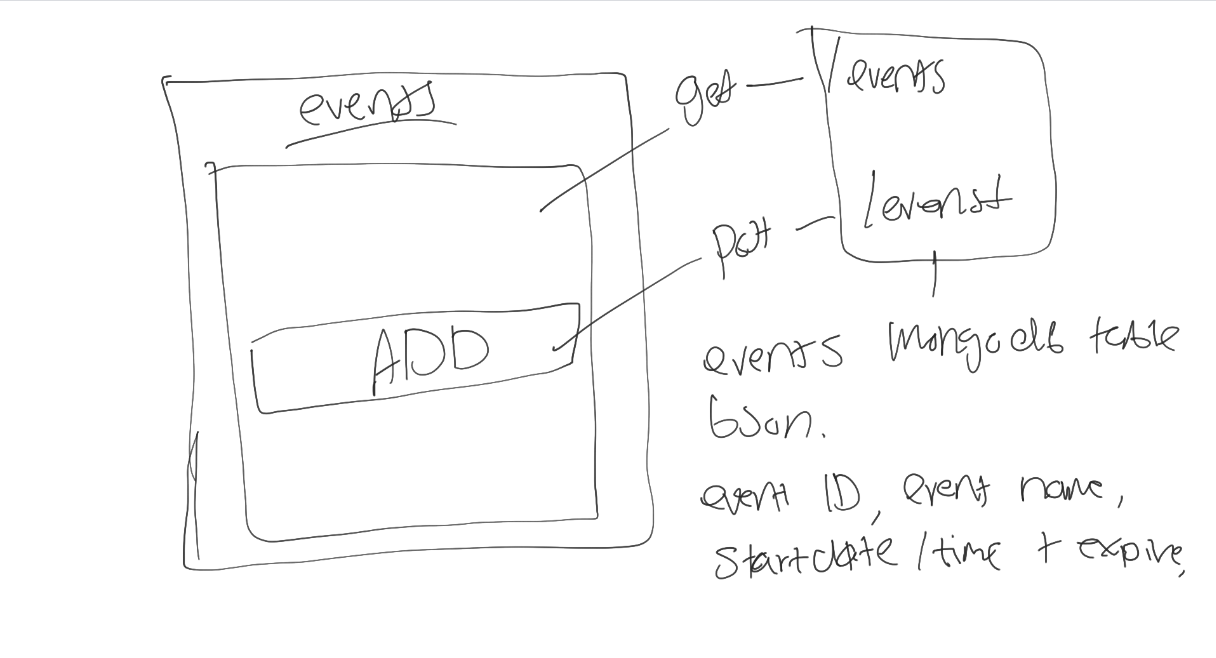 events
get
/events
/evenst
put
ADD
events Mongodb table
bson.
event ID, event name,
startdate/time + expire,